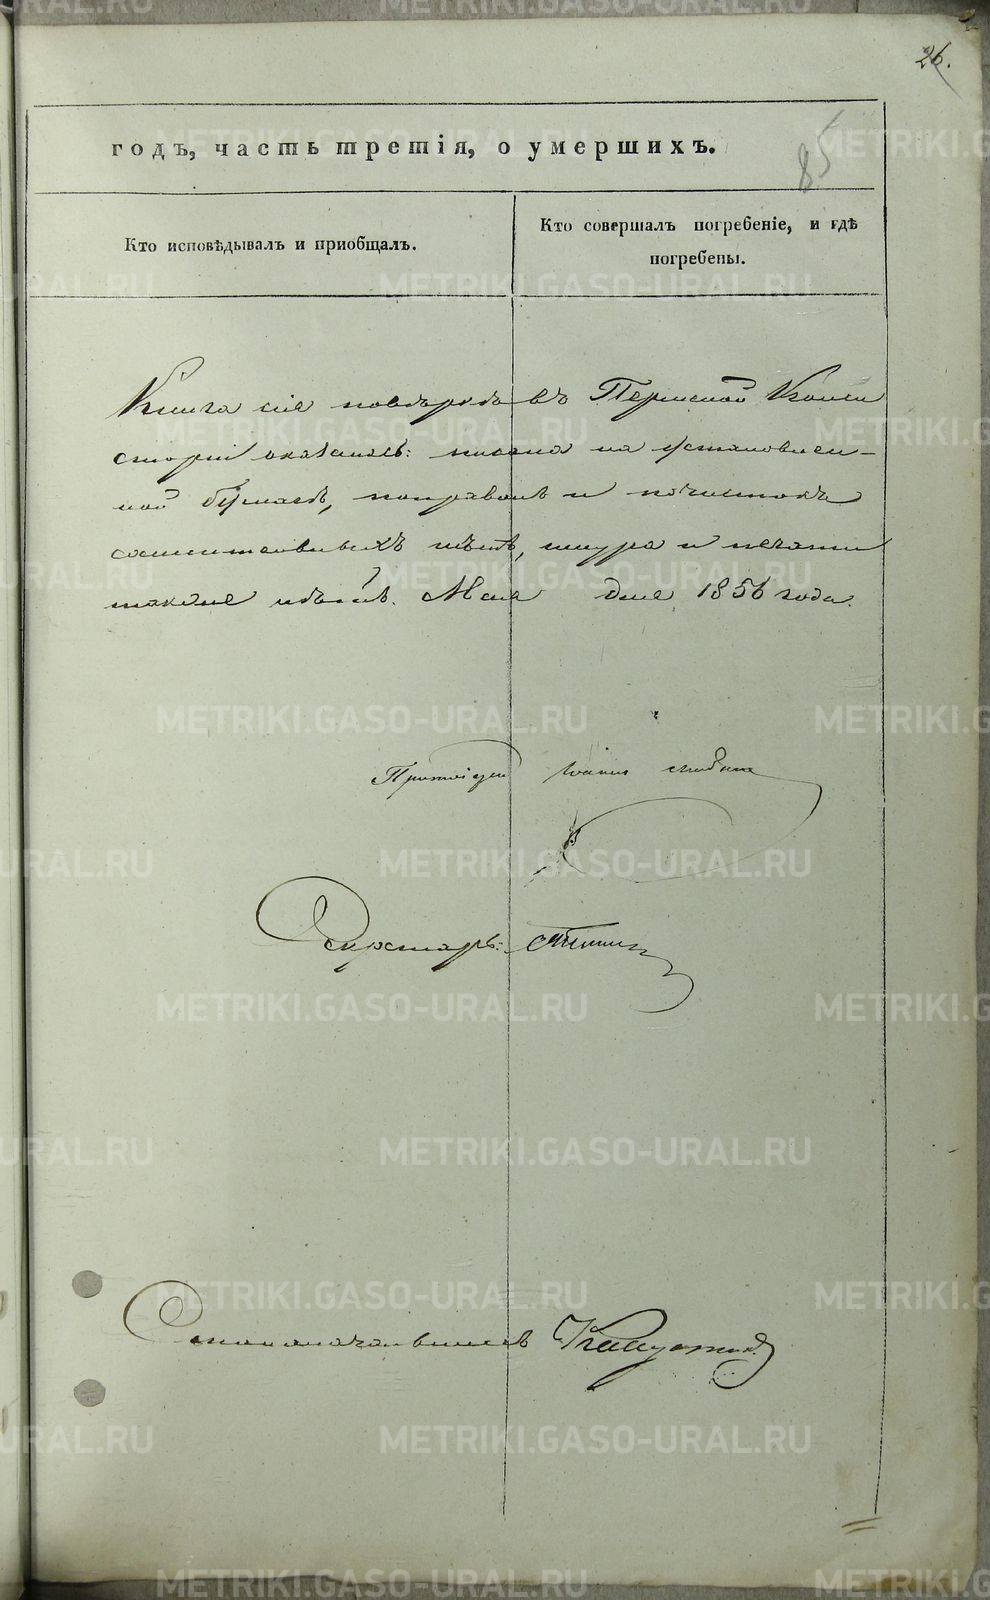 26.
годъ, часть третія, о умершихъ.
85
Кто исповѣдывалъ и приобщалъ.
Кто совершалъ погребеніе, и гдѣ
погребены.
Книга сія повѣркѣ въ Пермской Конси
сторіи оказалась: писана на установлен-
ной бумагѣ, поправокъ и почистокъ
мѣстъ, шнура и печати
Мая дня 1856 года.
Протоіерей Іоаннъ
Секретарь:
Столоначальникъ
METRIKI.GASO-URAL.RU